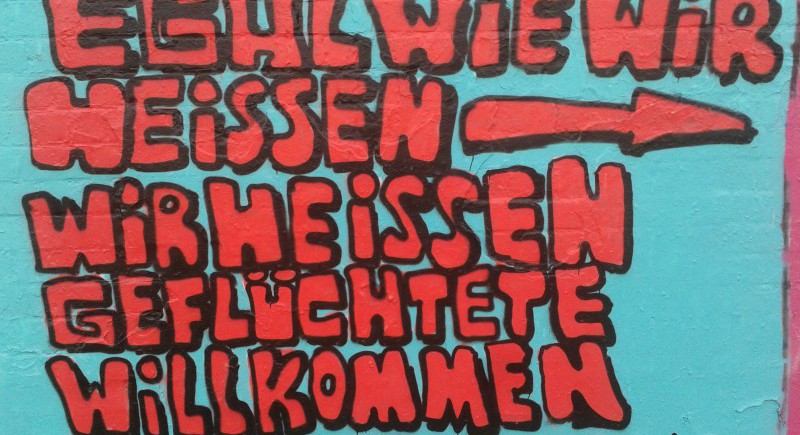 EGAL WIE WIR
HEISSEN
WIR HEISSEN
GEFLÜCHTETE
WILLKOMMEN